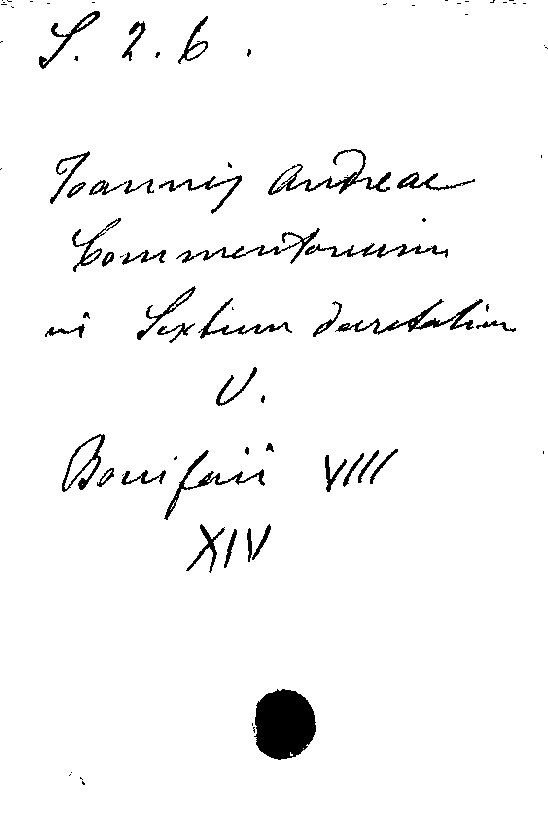 S. 2. 6.
Ioannis Andreae
Commentarium
in Sextum decretalium
V.
Bonifacii VIII
XIV